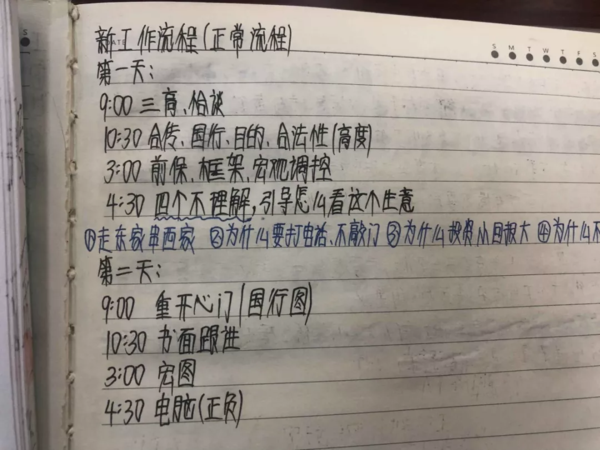 新工作流程(正常流程)
S M T W T F S
第一天:
9:00 三商、恰谈
10:30 合传、国行、目的、合法性(高度)
3:00 前保、框架、宏观调控
4:30 四个不理解,引导怎么看这个生意
①走东家串西家 ②为什么要打电话、不敲门 ③为什么投资小回报大 ④为什么不
第二天:
9:00 重开心门(国行图)
10:30 书面跟进
3:00 宏图
4:30 电脑(正负)